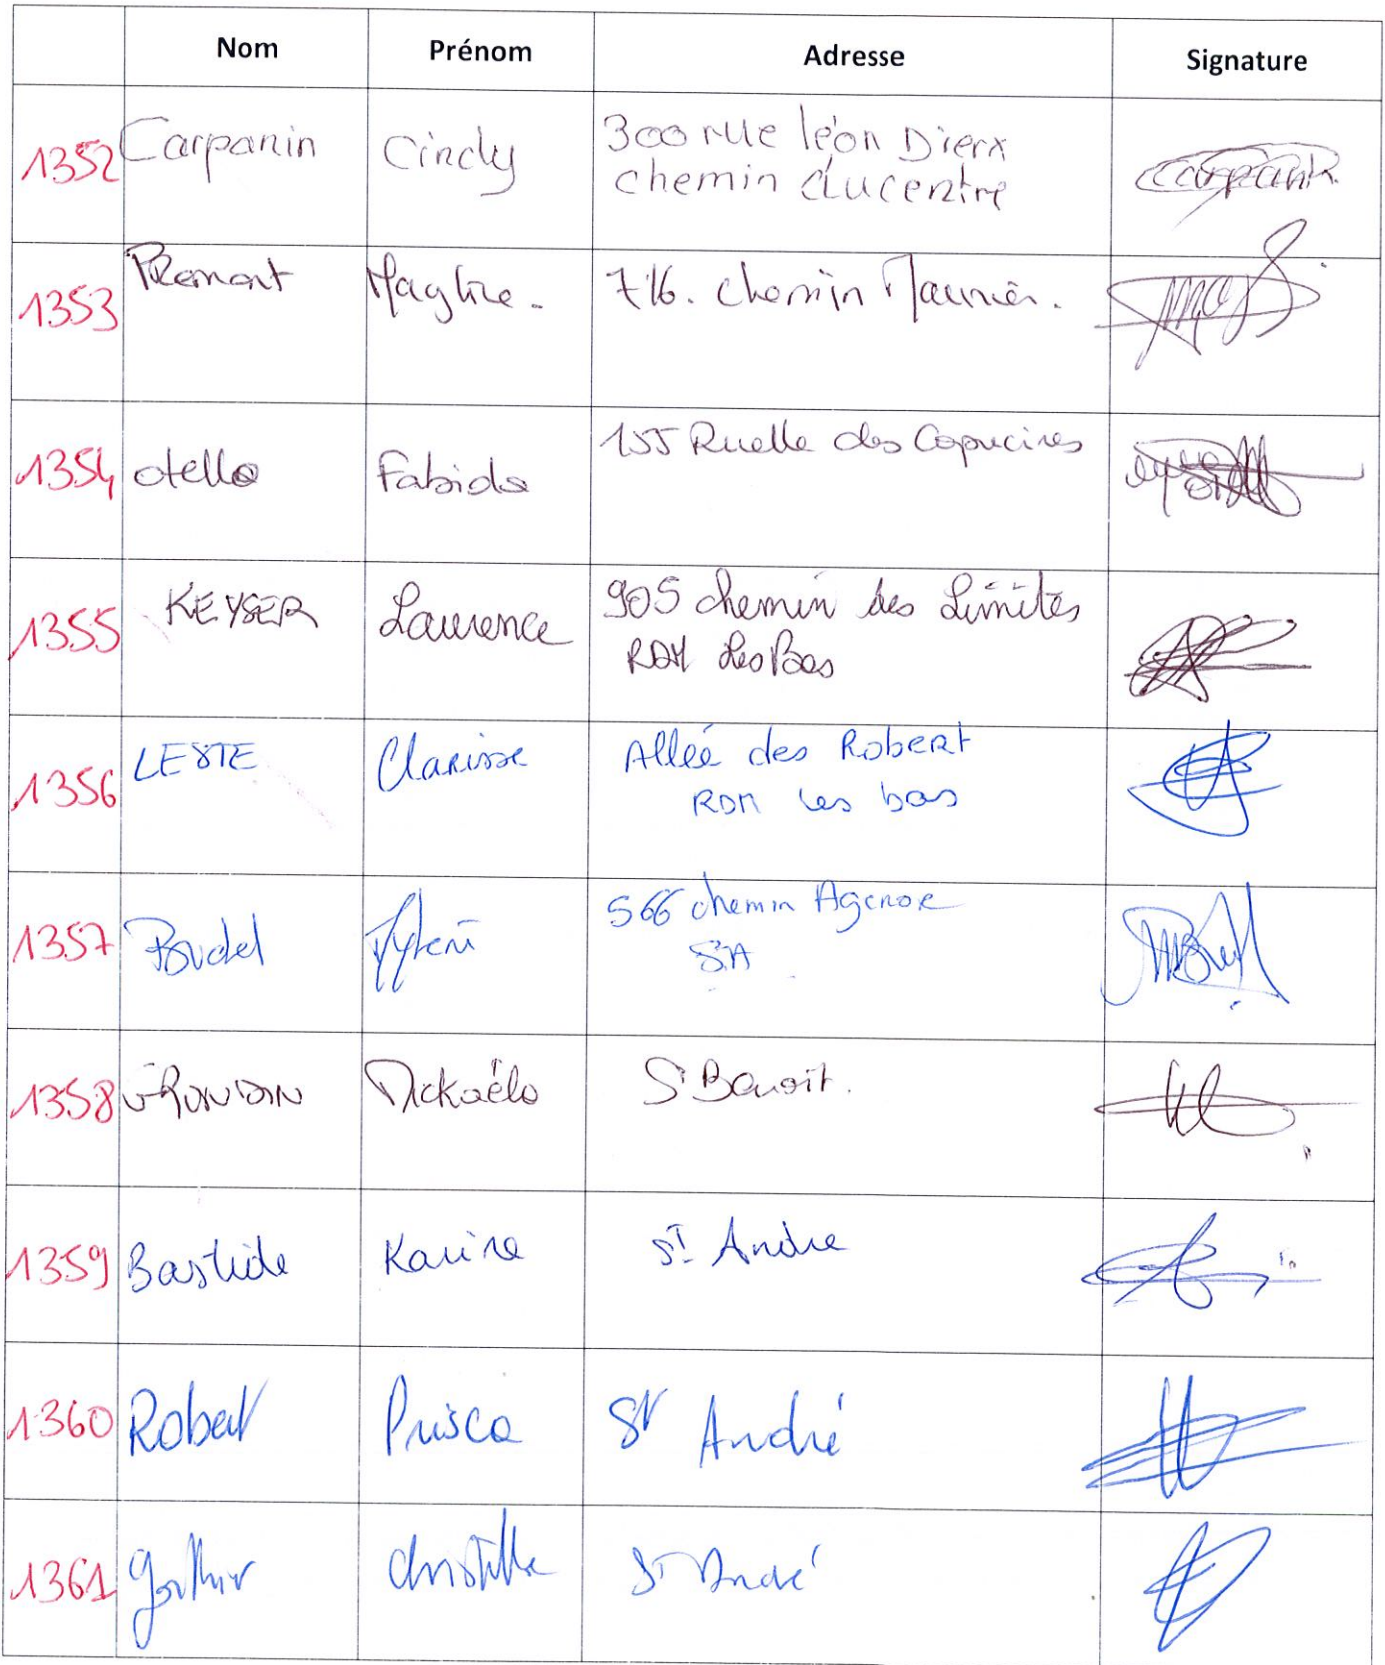 Nom Prénom Adresse Signature
1352 Carpanin Cindy 300 rue léon Dierx
chemin ducentre
1353 716. chemin
1354 otello Fabiola 155 Ruelle des Capucines
1355 KEYSER Laurence 905 chemin des Limites
RDM Les Bas
1356 LESTE Clarisse Alleé des Robert
RDM les bas
1357 Boudel 566 chemin Agenor
SA
1358 Mickaëlo St Benoit.
1359 Bastide Karine St Andre
1360 Robert Prisca St André
1361 St André